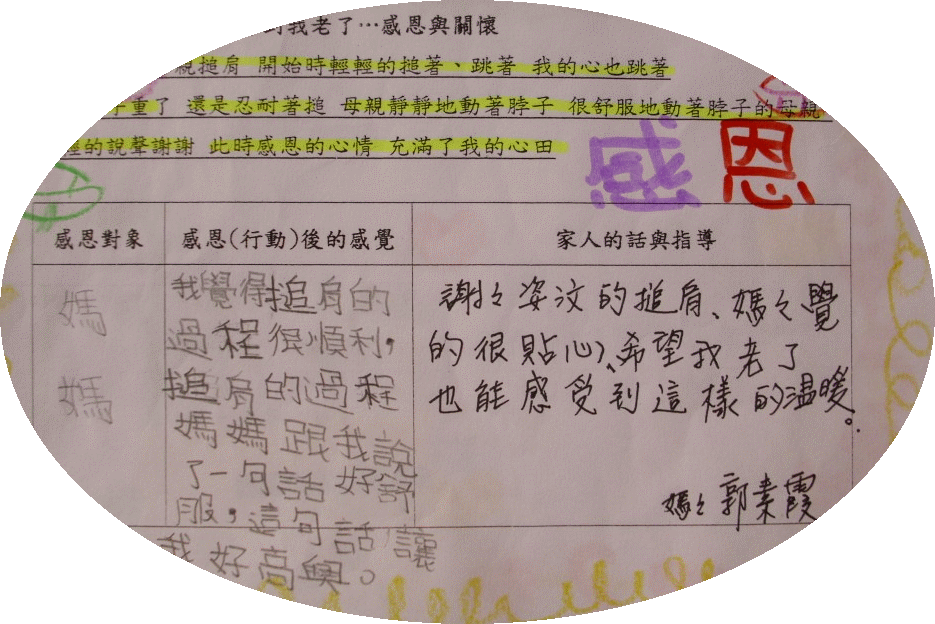 我老了…感恩與關懷
親搥肩 開始時輕輕的搥著、跳著 我的心也跳著
重了 還是忍耐著搥 母親靜靜地動著脖子 很舒服地動著脖子的母親
的說聲謝謝 此時感恩的心情 充滿了我的心田
感恩
感恩對象 感恩(行動)後的感覺 家人的話與指導
媽
媽
我覺得搥肩的
過程很順利,
搥肩的過程
媽媽跟我說
了一句話好舒
服,這句話讓
我好高興。
謝々姿汶的搥肩、媽々覺
的很貼心、希望我老了
也能感受到這樣的溫暖。
媽々郭素霞